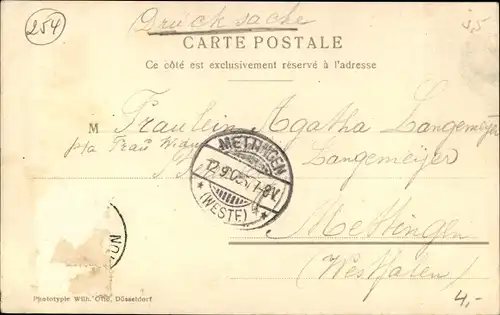 254
Drucksache
35
CARTE POSTALE
Ce côté est exclusivement réservé à l'adresse
M Fräulein Agatha Langemeyer
p/a Frau Langemeyer
METTINGEN
12.9.05. 7-8V.
* (WESTF.) *
Mettingen
(Westfalen)
Phototypie Wilh. Otto, Düsseldorf
4,-